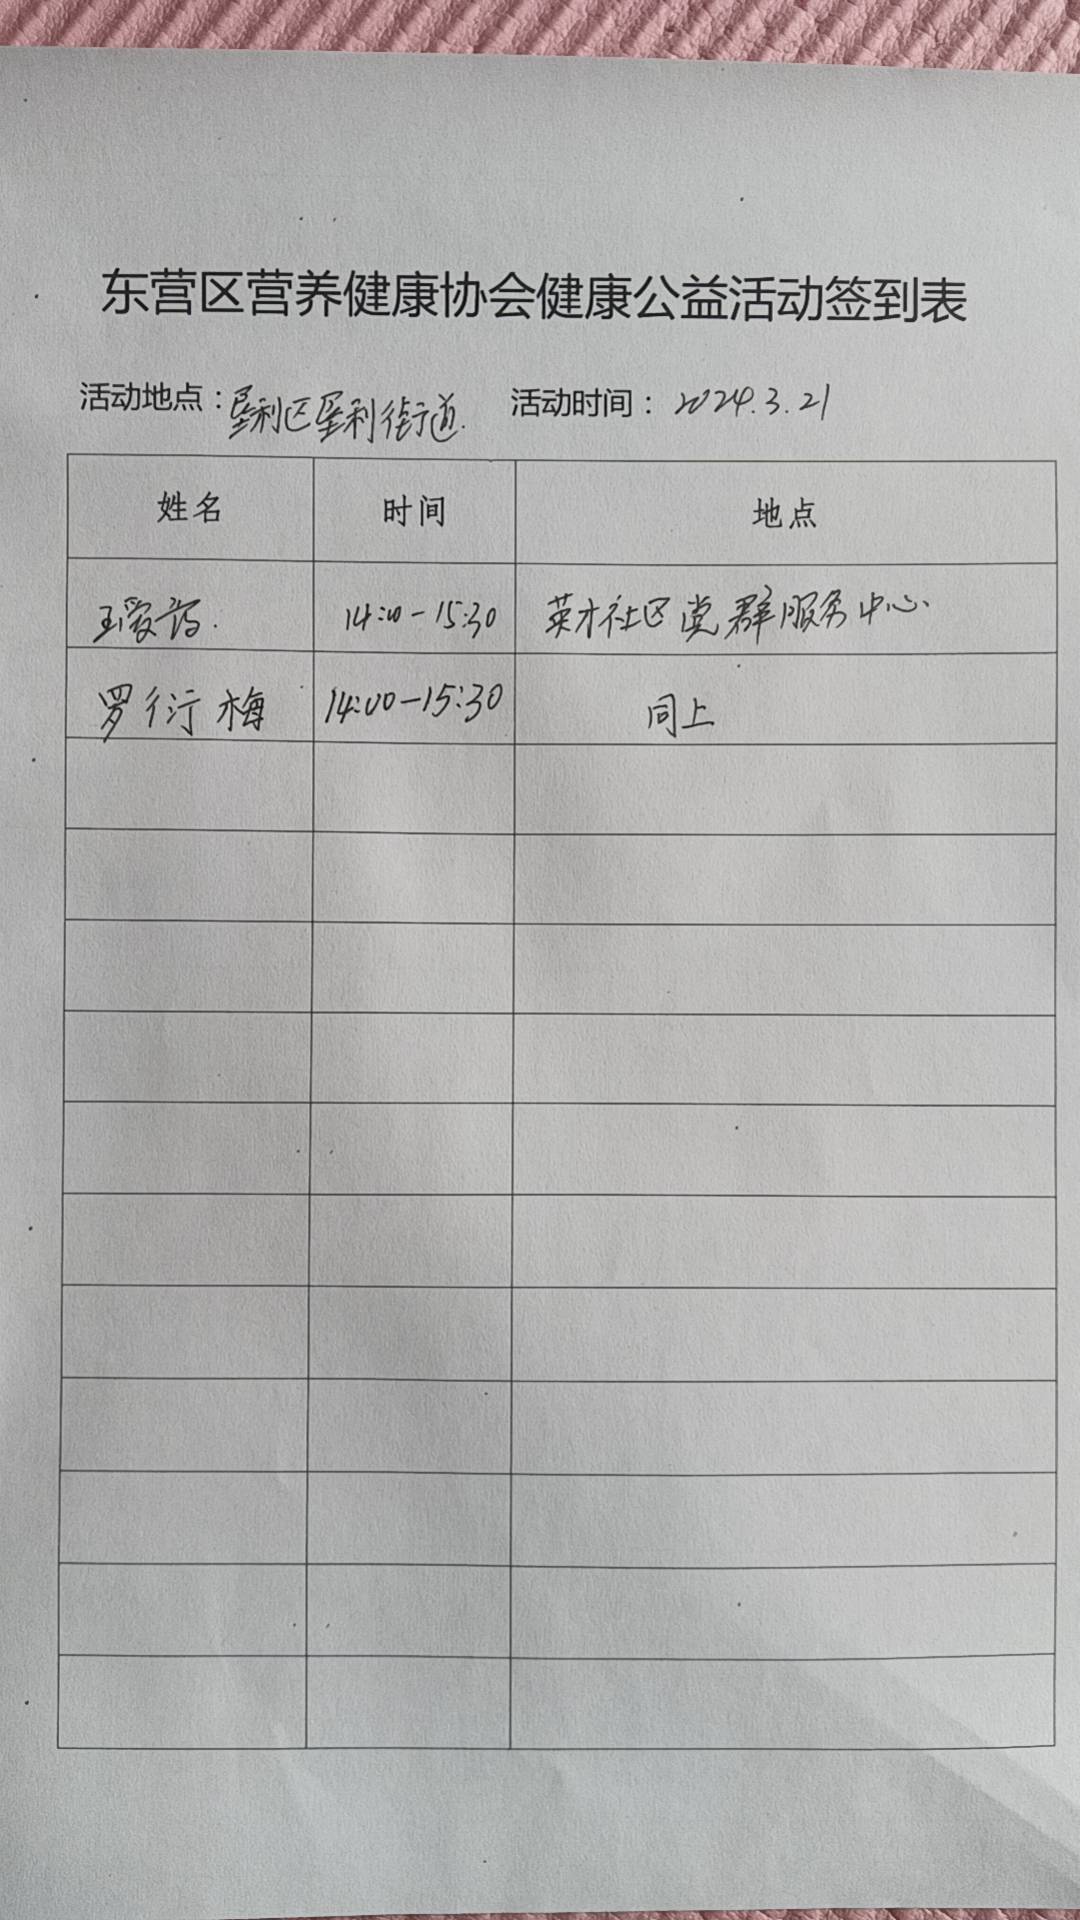 东营区营养健康协会健康公益活动签到表
活动地点：垦利区垦利街道. 活动时间：2024.3.21
姓名 时间 地点
王爱 14:00-15:30 英才社区党群服务中心.
罗衍梅 14:00-15:30 同上